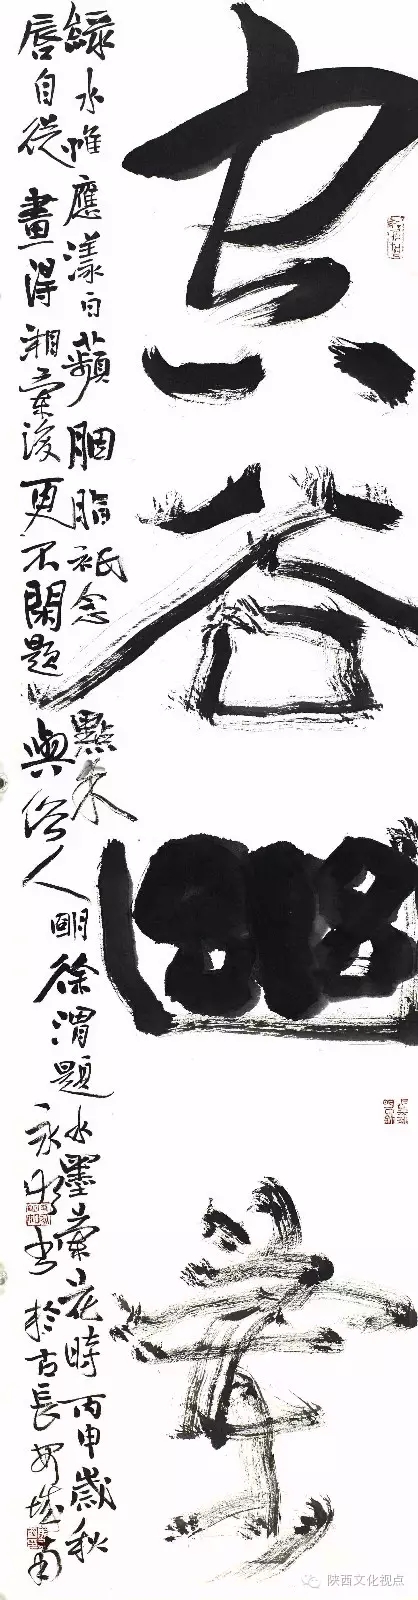 空谷幽蘭
綠水惟應漾白蘋胭脂衹念點朱
唇自從畫得湘蘭後更不閑題與俗人明徐渭題
水墨蘭花時丙申歲秋
永書於古長安城南
陕西文化视点